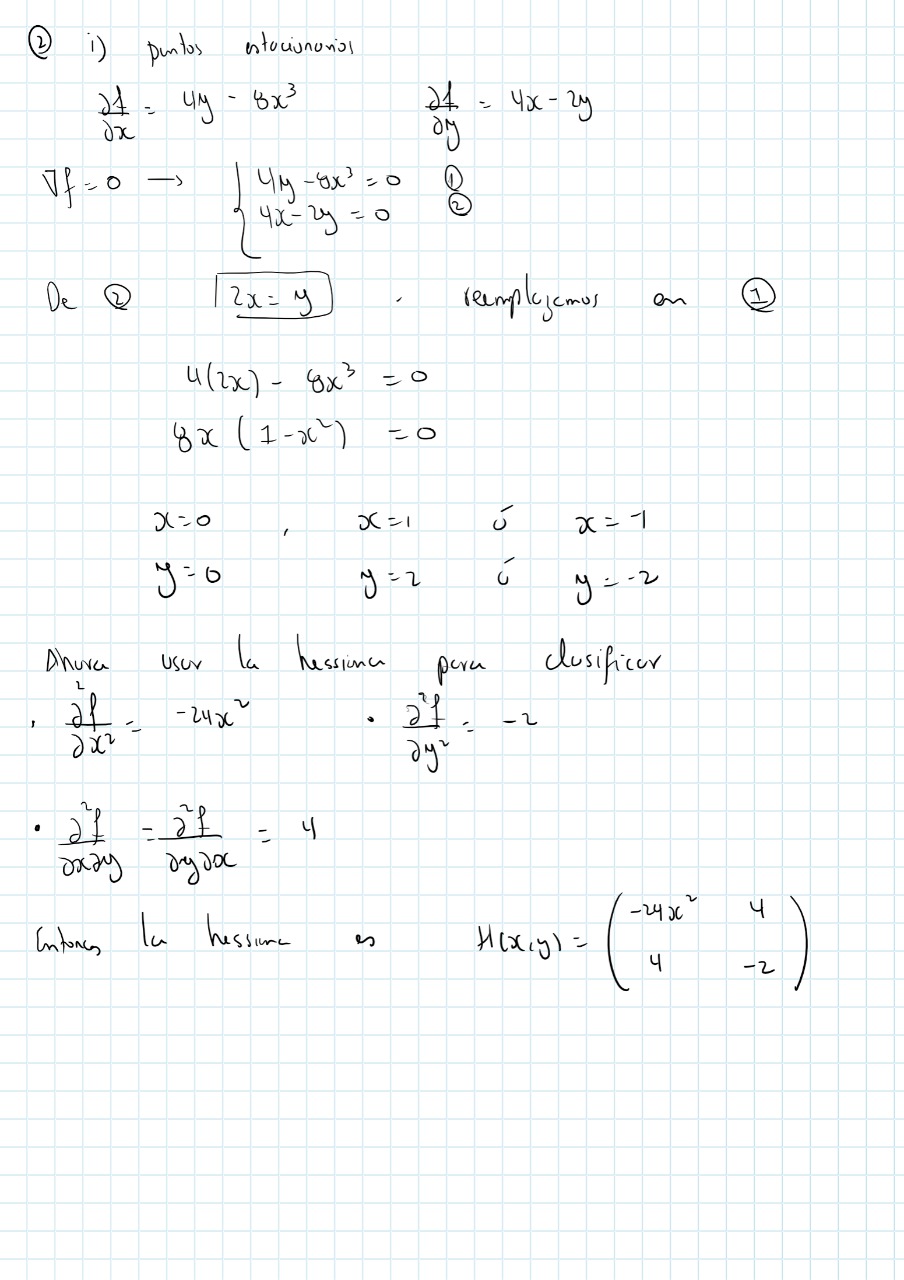 ② i) puntos estacionarios
∂f/∂x = 4y - 8x³   ∂f/∂y = 4x - 2y
∇f = 0 → { 4y - 8x³ = 0 ①
4x - 2y = 0 ②
De ② 2x = y , reemplazamos en ①
4(2x) - 8x³ = 0
8x (1 - x²) = 0
x = 0 , x = 1 ó x = -1
y = 0 y = 2 ó y = -2
Ahora usar la hessiana para clasificar
• ∂²f/∂x² = -24x² • ∂²f/∂y² = -2
• ∂²f/∂x∂y = ∂²f/∂y∂x = 4
Entonces la hessiana es H(x,y) = ( -24x² 4
4 -2 )